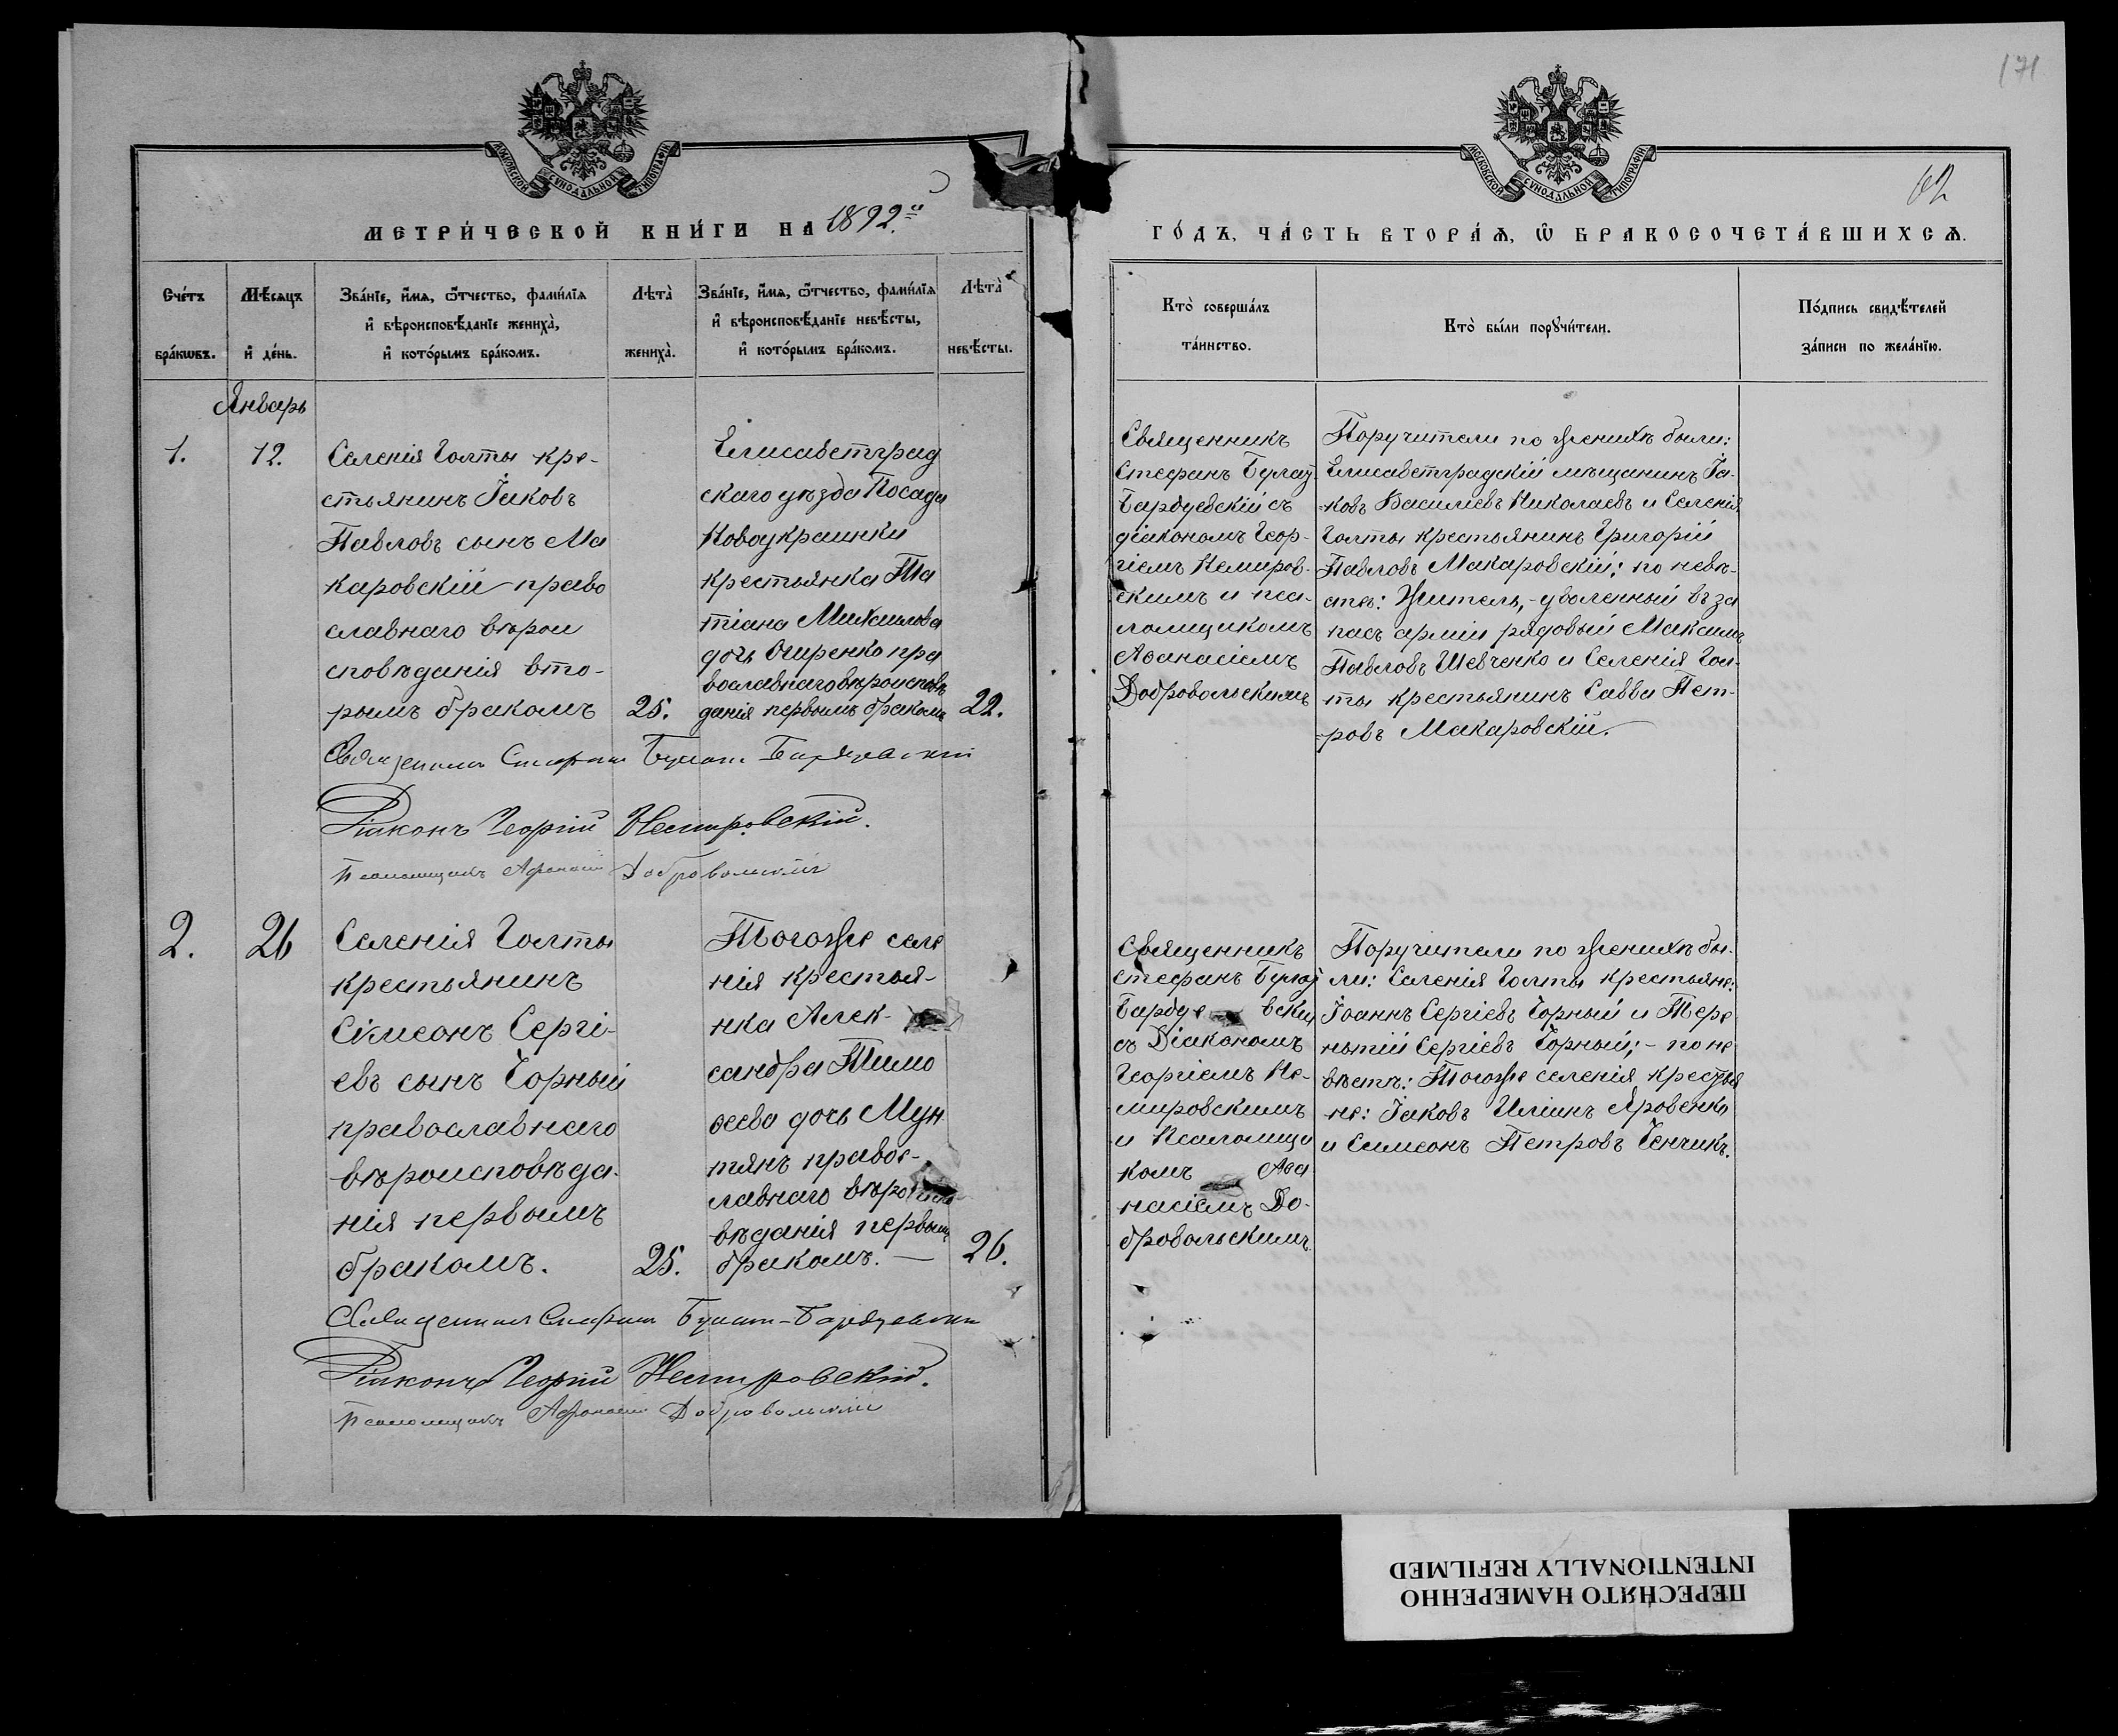 171
МОСКОВСКОЙ СѴНОДАЛЬНОЙ ТИПОГРАФІИ
МЕТРИ́ЧЕСКОЙ КНИ́ГИ НА 1892.й
Сче́тъ бра́кѡвъ.
Мѣ́сяцъ и҆ де́нь.
Зва́нїе, и҆́мѧ, ѻ҆́тчество, фами́лїѧ
и҆ вѣроисповѣ́данїе жениха̀,
и҆ кото́рымъ бра́комъ.
Лѣта̀ жениха̀.
Зва́нїе, и҆́мѧ, ѻ҆́тчество, фами́лїѧ
и҆ вѣроисповѣ́данїе невѣ́сты,
и҆ кото́рымъ бра́комъ.
Лѣта̀ невѣ́сты.
Январь
1.
12.
Селенія Голты кре-
стьянинъ Іаковъ
Павловъ сынъ Ма
каровскій право
славнаго вѣрои
сповѣданія вто-
рымъ бракомъ
25.
Елисаветград
скаго уѣзда Посада
Новоукраинки
крестьянка Та
тіана Михаилова
дочь Очиренко пра
вославнаго вѣроисповѣ
данія первымъ бракомъ
22.
Священникъ Стефанъ Бугаш Бардуевскій
Діаконъ Георгій Немировскій.
Псаломщикъ Афанасій Добровольскій
2.
26
Селенія Голты
крестьянинъ
Сімеонъ Сергі-
евъ сынъ Чорный
православнаго
вѣроисповѣда-
нія первымъ
бракомъ.
25.
Тогоже селе
нія крестья-
нка Алек-
сандра Тимо
ѳеева дочь Мун
тянъ правос-
лавнаго вѣроиспо
вѣданія первымъ
бракомъ. —
26.
Священникъ Стефанъ Бугаш-Бардуевскій
Діаконъ Георгій Немировскій.
Псаломщикъ Афанасій Добровольскій
МОСКОВСКОЙ СѴНОДАЛЬНОЙ ТИПОГРАФІИ
62
ГО́ДЪ, ЧА́СТЬ ВТОРА́Ѧ, Ѡ҆ БРАКОСОЧЕТА́ВШИХСѦ.
Кто̀ соверша́лъ
та́инство.
Кто̀ бы́ли порꙋчи́тели.
По́дпись свидѣ́телей
за́писи по жела́нїю.
Священникъ
Стефанъ Бугаш
Бардуевскій съ
діакономъ Геор-
гіемъ Немиров-
скимъ и пса-
ломщикомъ
Аѳанасіемъ
Добровольскимъ
Поручители по женихѣ были:
Елисаветградскій мѣщанинъ Іа-
ковъ Василіевъ Николаевъ и Селенія
Голты крестьянинъ Григорій
Павловъ Макаровскій; по невѣ-
стѣ: Житель, - уволенный въ за
пасъ арміи рядовый Максимъ
Павловъ Шевченко и Селенія Гол-
ты крестьянинъ Савва Пет-
ровъ Макаровскій.
Священникъ
Стефанъ Бугаш
Бардуевскій
съ Діакономъ
Георгіемъ Не-
мировскимъ
и Псаломщи
комъ Аѳа
насіемъ До-
бровольскимъ.
Поручители по женихѣ бы-
ли: Селенія Голты крестьяне:
Іоаннъ Сергіевъ Чорный и Тере
нтій Сергіевъ Чорный; - по не
вѣстѣ: Тогоже селенія крестья
не: Іаковъ Иліинъ Яровенко
и Симеонъ Петровъ Генчикъ.
ПЕРЕСНЯТО НАМЕРЕННО
INTENTIONALLY REFILMED